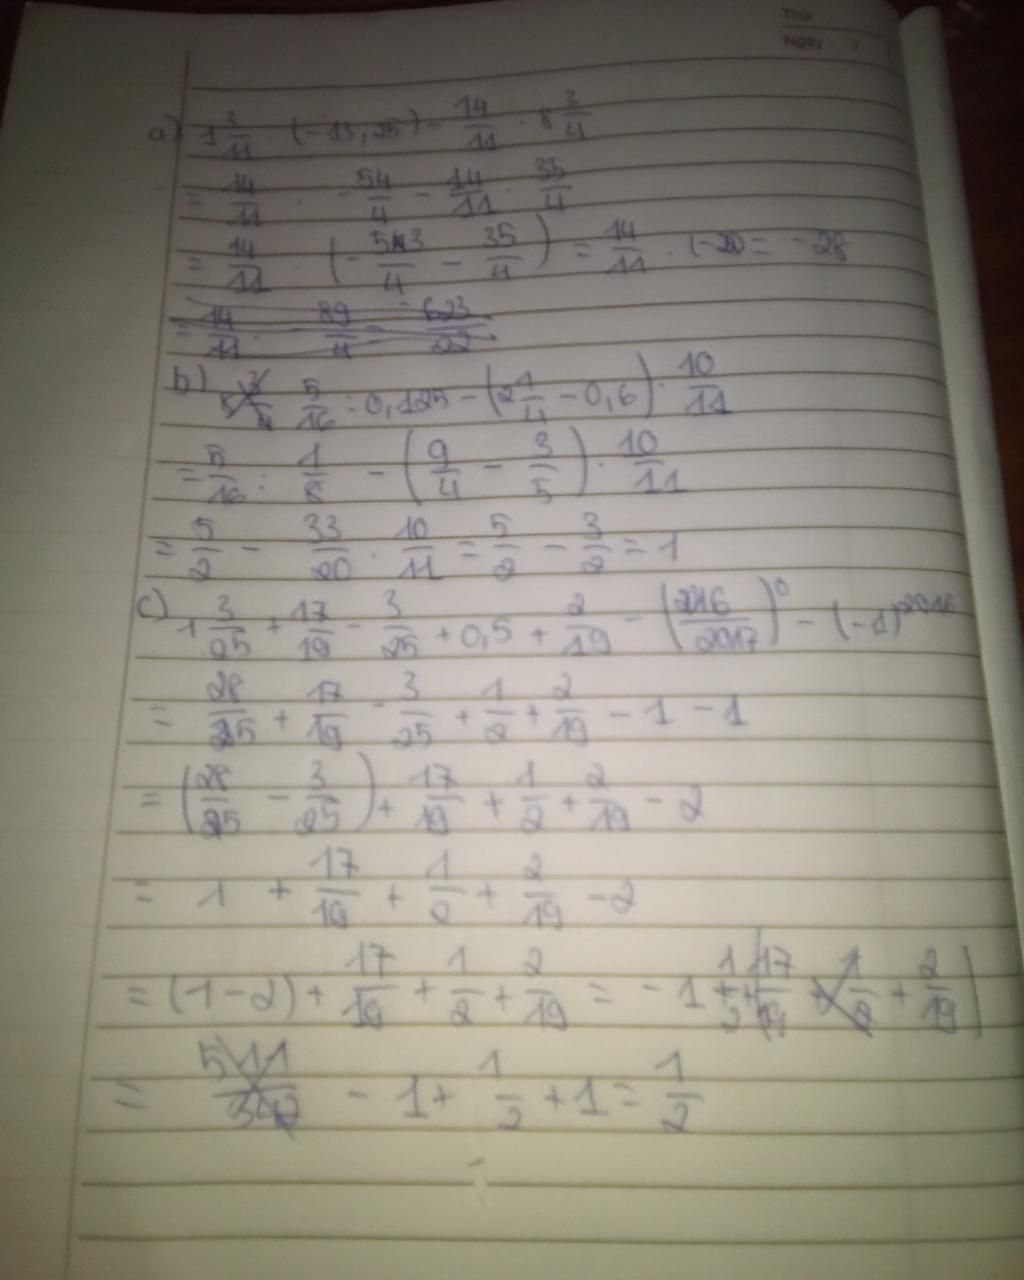 Thứ
Ngày / /
a) 1 3/11 · (-13,25) - 14/11 · 8 3/4
= 14/11 · -54/4 - 14/11 · 35/4
= 14/11 · (-53/4 - 35/4) = 14/11 · (-22) = -28
= 14/11 · -89/4 = -623/22
b) 5/16 : 0,125 - (2 1/4 - 0,6) · 10/11
= 5/16 : 1/8 - (9/4 - 3/5) · 10/11
= 5/2 - 33/20 · 10/11 = 5/2 - 3/2 = 1
c) 1 3/25 + 17/19 - 3/25 + 0,5 + 2/19 - (2016/2017)^0 - (-1)^2016
= 28/25 + 17/19 - 3/25 + 1/2 + 2/19 - 1 - 1
= (28/25 - 3/25) + 17/19 + 1/2 + 2/19 - 2
= 1 + 17/19 + 1/2 + 2/19 - 2
= (1 - 2) + 17/19 + 1/2 + 2/19 = -1 + 1/2 + (17/19 + 2/19)
= -1 + 1/2 + 1 = 1/2